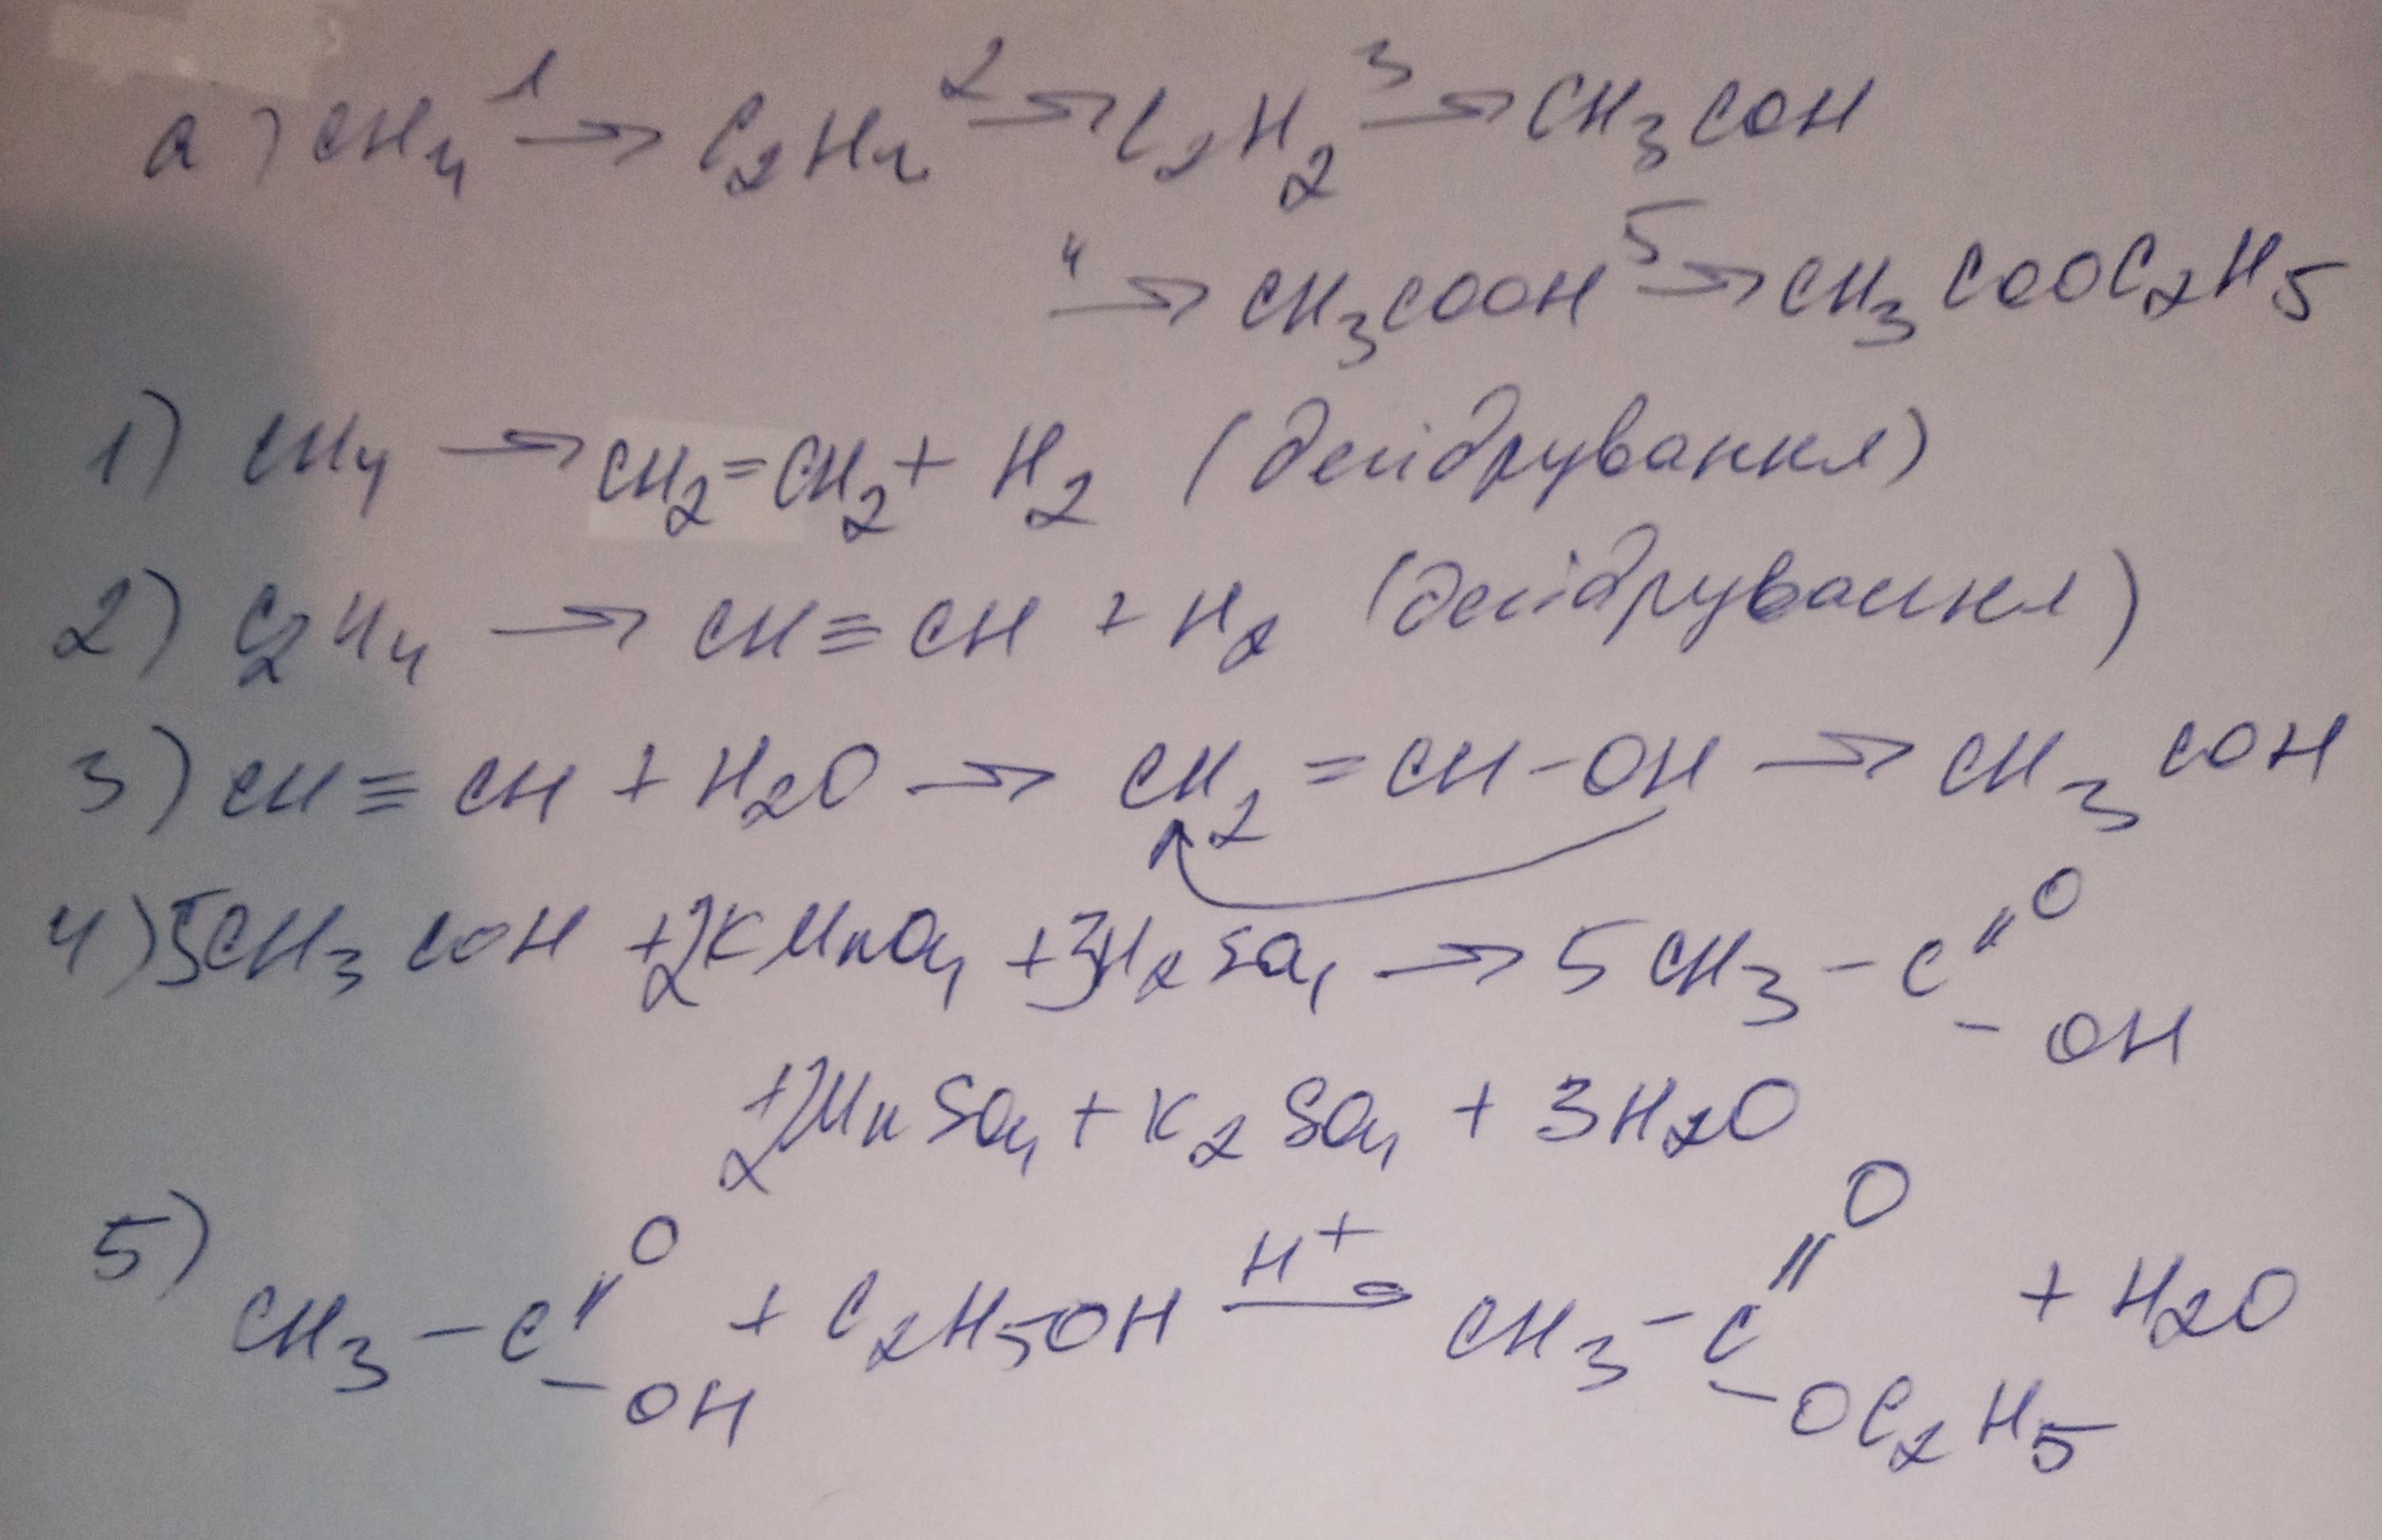 а) CH₄ 1→ C₂H₄ 2→ C₂H₂ 3→ CH₃COH
4→ CH₃COOH 5→ CH₃COOC₂H₅
1) CH₄ → CH₂=CH₂ + H₂ (дегідрування)
2) C₂H₄ → CH≡CH + H₂ (дегідрування)
3) CH≡CH + H₂O → CH₂=CH-OH → CH₃COH
4) 5CH₃COH + 2KMnO₄ + 3H₂SO₄ → 5CH₃-C=O-OH
+ 2MnSO₄ + K₂SO₄ + 3H₂O
5) CH₃-C=O-OH + C₂H₅OH H⁺→ CH₃-C=O-OC₂H₅ + H₂O